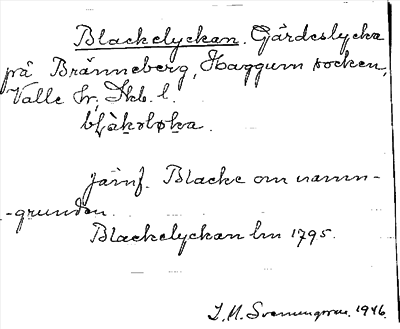 Blackelyckan. Gärdeslycka
på Bränneberg, Haggum socken,
Valle hr, Skb. l.
Jämf. Blacke om namn-
-grunden.
Blackelyckan lm 1795.
1946.